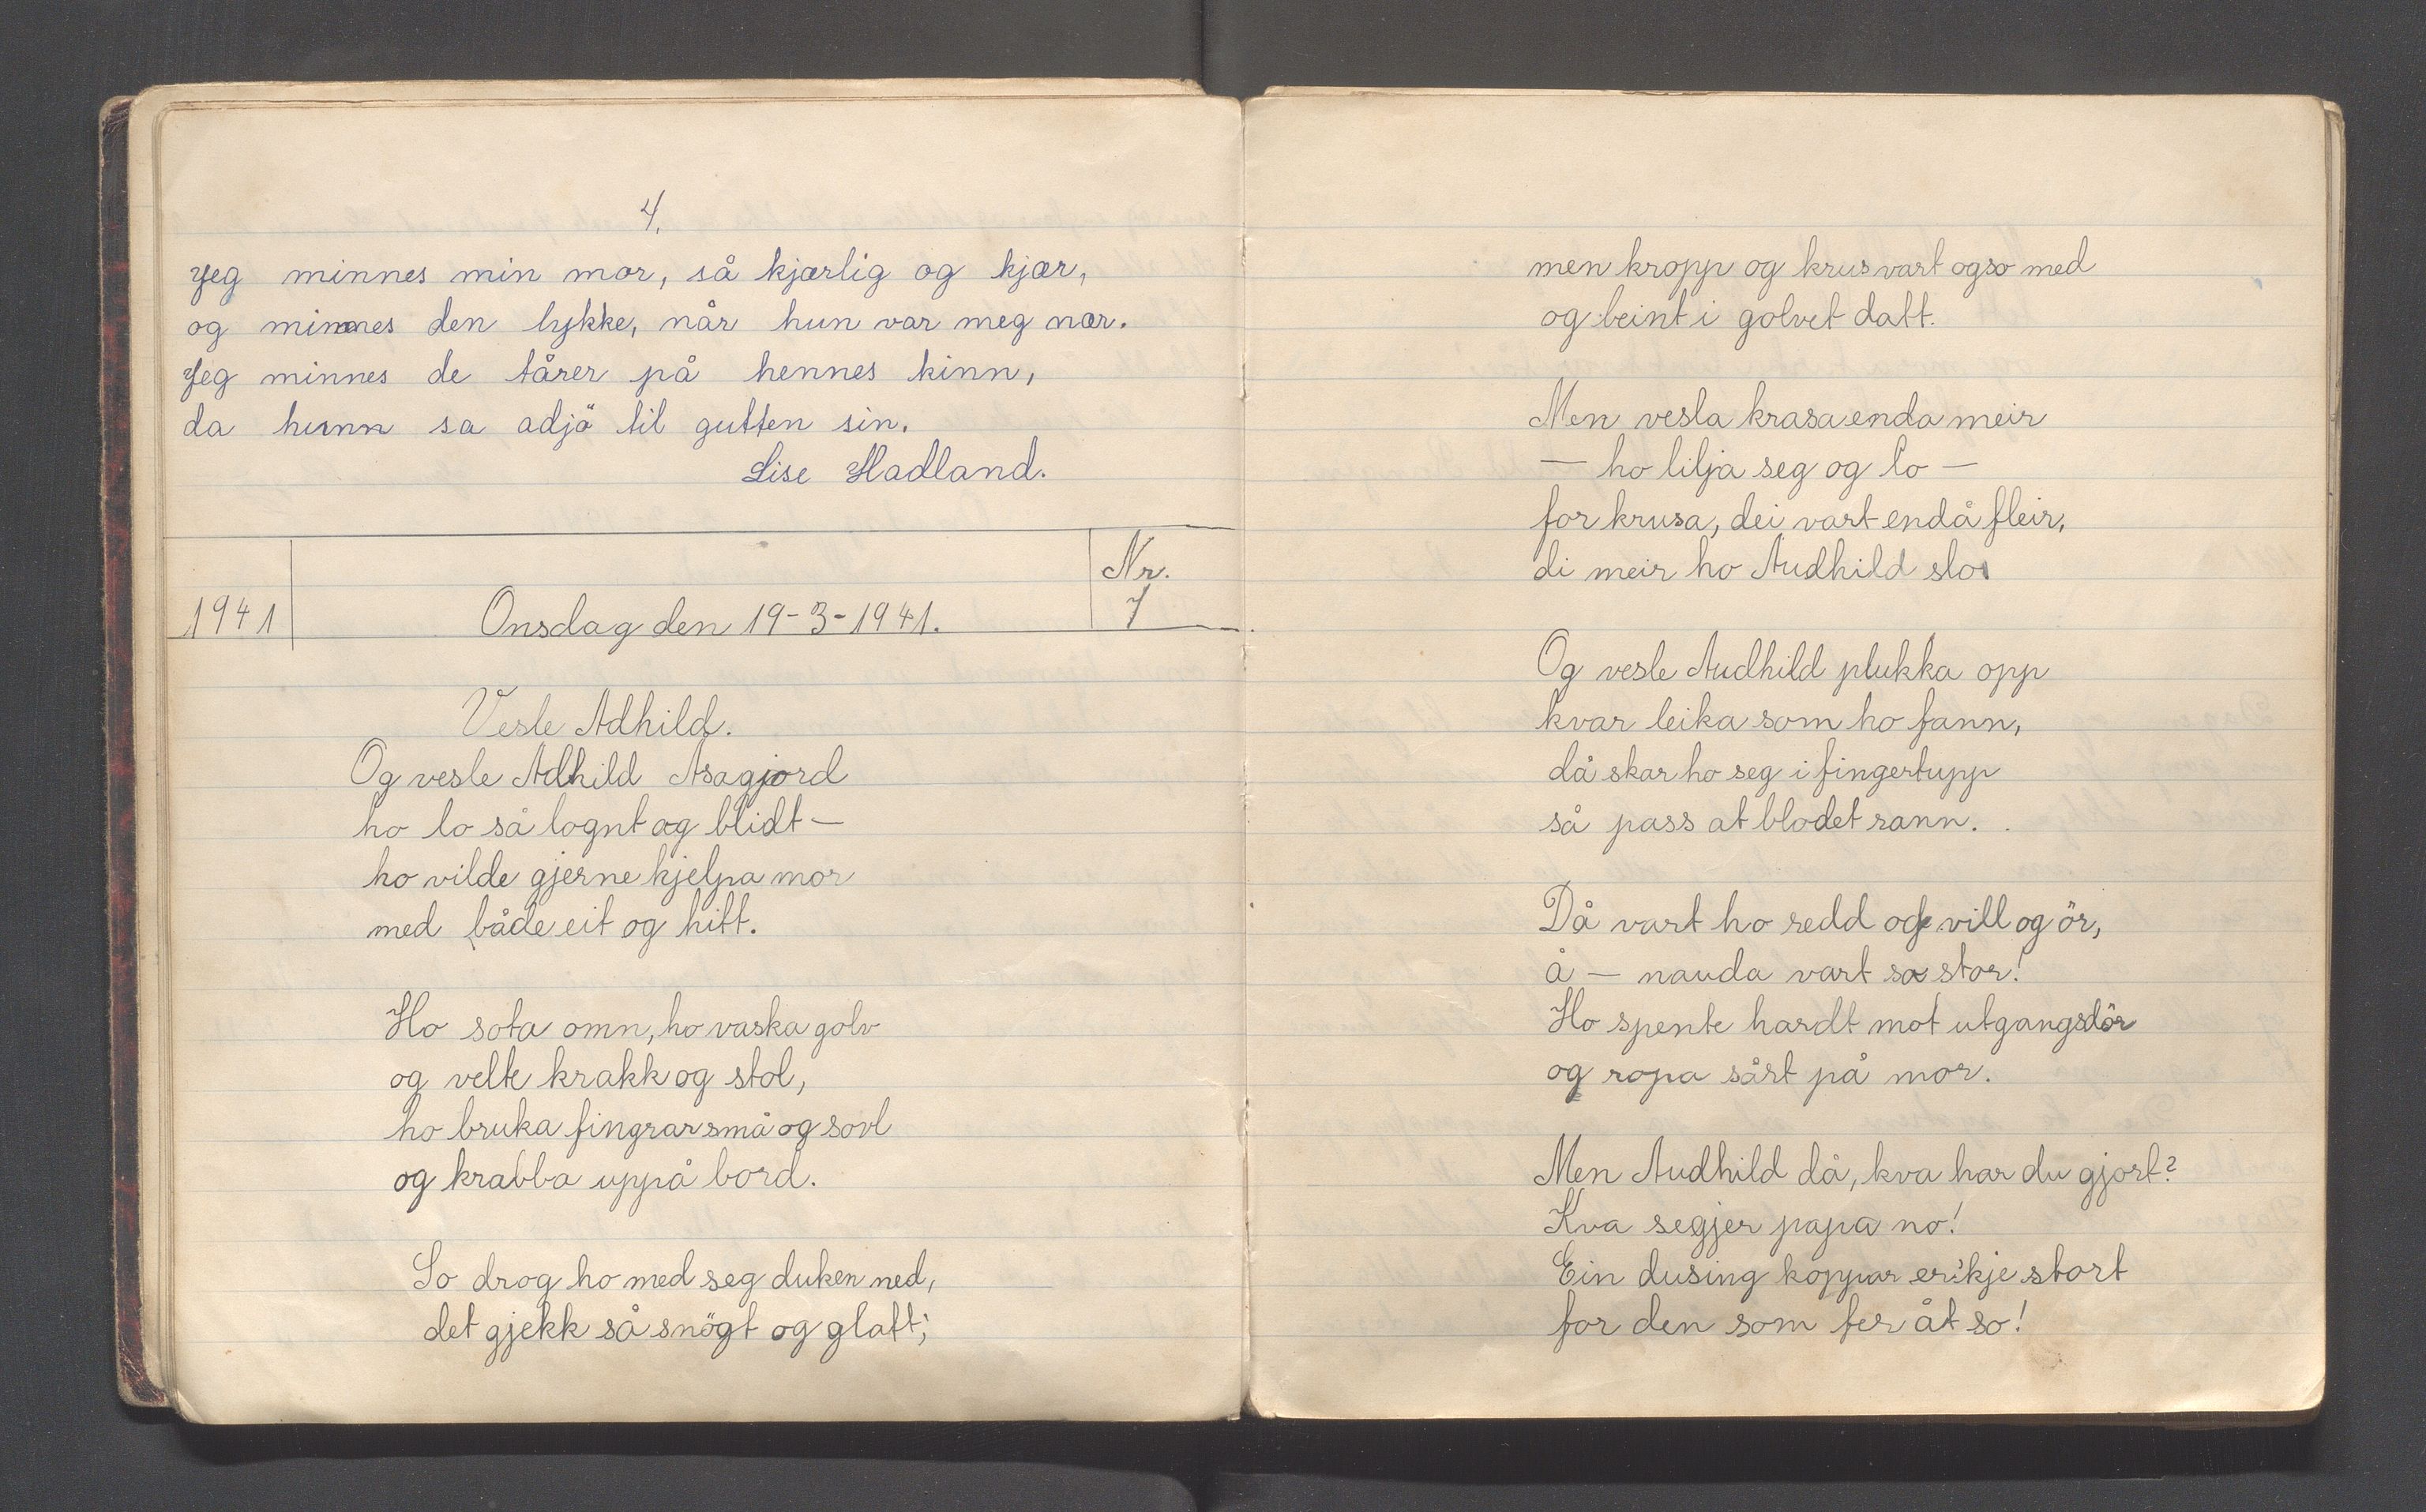 4.
Jeg minnes min mor, så kjærlig og kjær,
og minnes den lykke, når hun var meg nær.
Jeg minnes de tårer på hennes kinn,
da hunn sa adjö til gutten sin.
Lise Hadland.
1941 Onsdag den 19-3-1941. Nr. 7
Vesle Adhild.
Og vesle Adhild Åsagjord
ho lo så lognt og blidt —
ho vilde gjerne hjelpa mor
med både eit og hitt.
Ho sota omn, ho vaska golv
og velte krakk og stol,
ho bruka fingrar små og sovl
og krabba uppå bord.
So drog ho med seg duken ned,
det gjekk så snögt og glatt;
men kropp og krus vart ogso med
og beint i golvet datt.
Men vesla krasa enda meir
— ho lilja seg og lo —
for krusa, dei vart endå fleir,
di meir ho Audhild slo.
Og vesle Audhild plukka opp
kvar leika som ho fann,
då skar ho seg i fingertupp
så pass at blodet rann.
Då vart ho redd og vill og ör,
å — nauda vart so stor!
Ho spente hardt mot utgangsdör
og ropa sårt på mor.
Men Audhild då, kva har du gjort?
Kva segjer papa no!
Ein dusing koppar er'kje stort
for den som fer åt so!